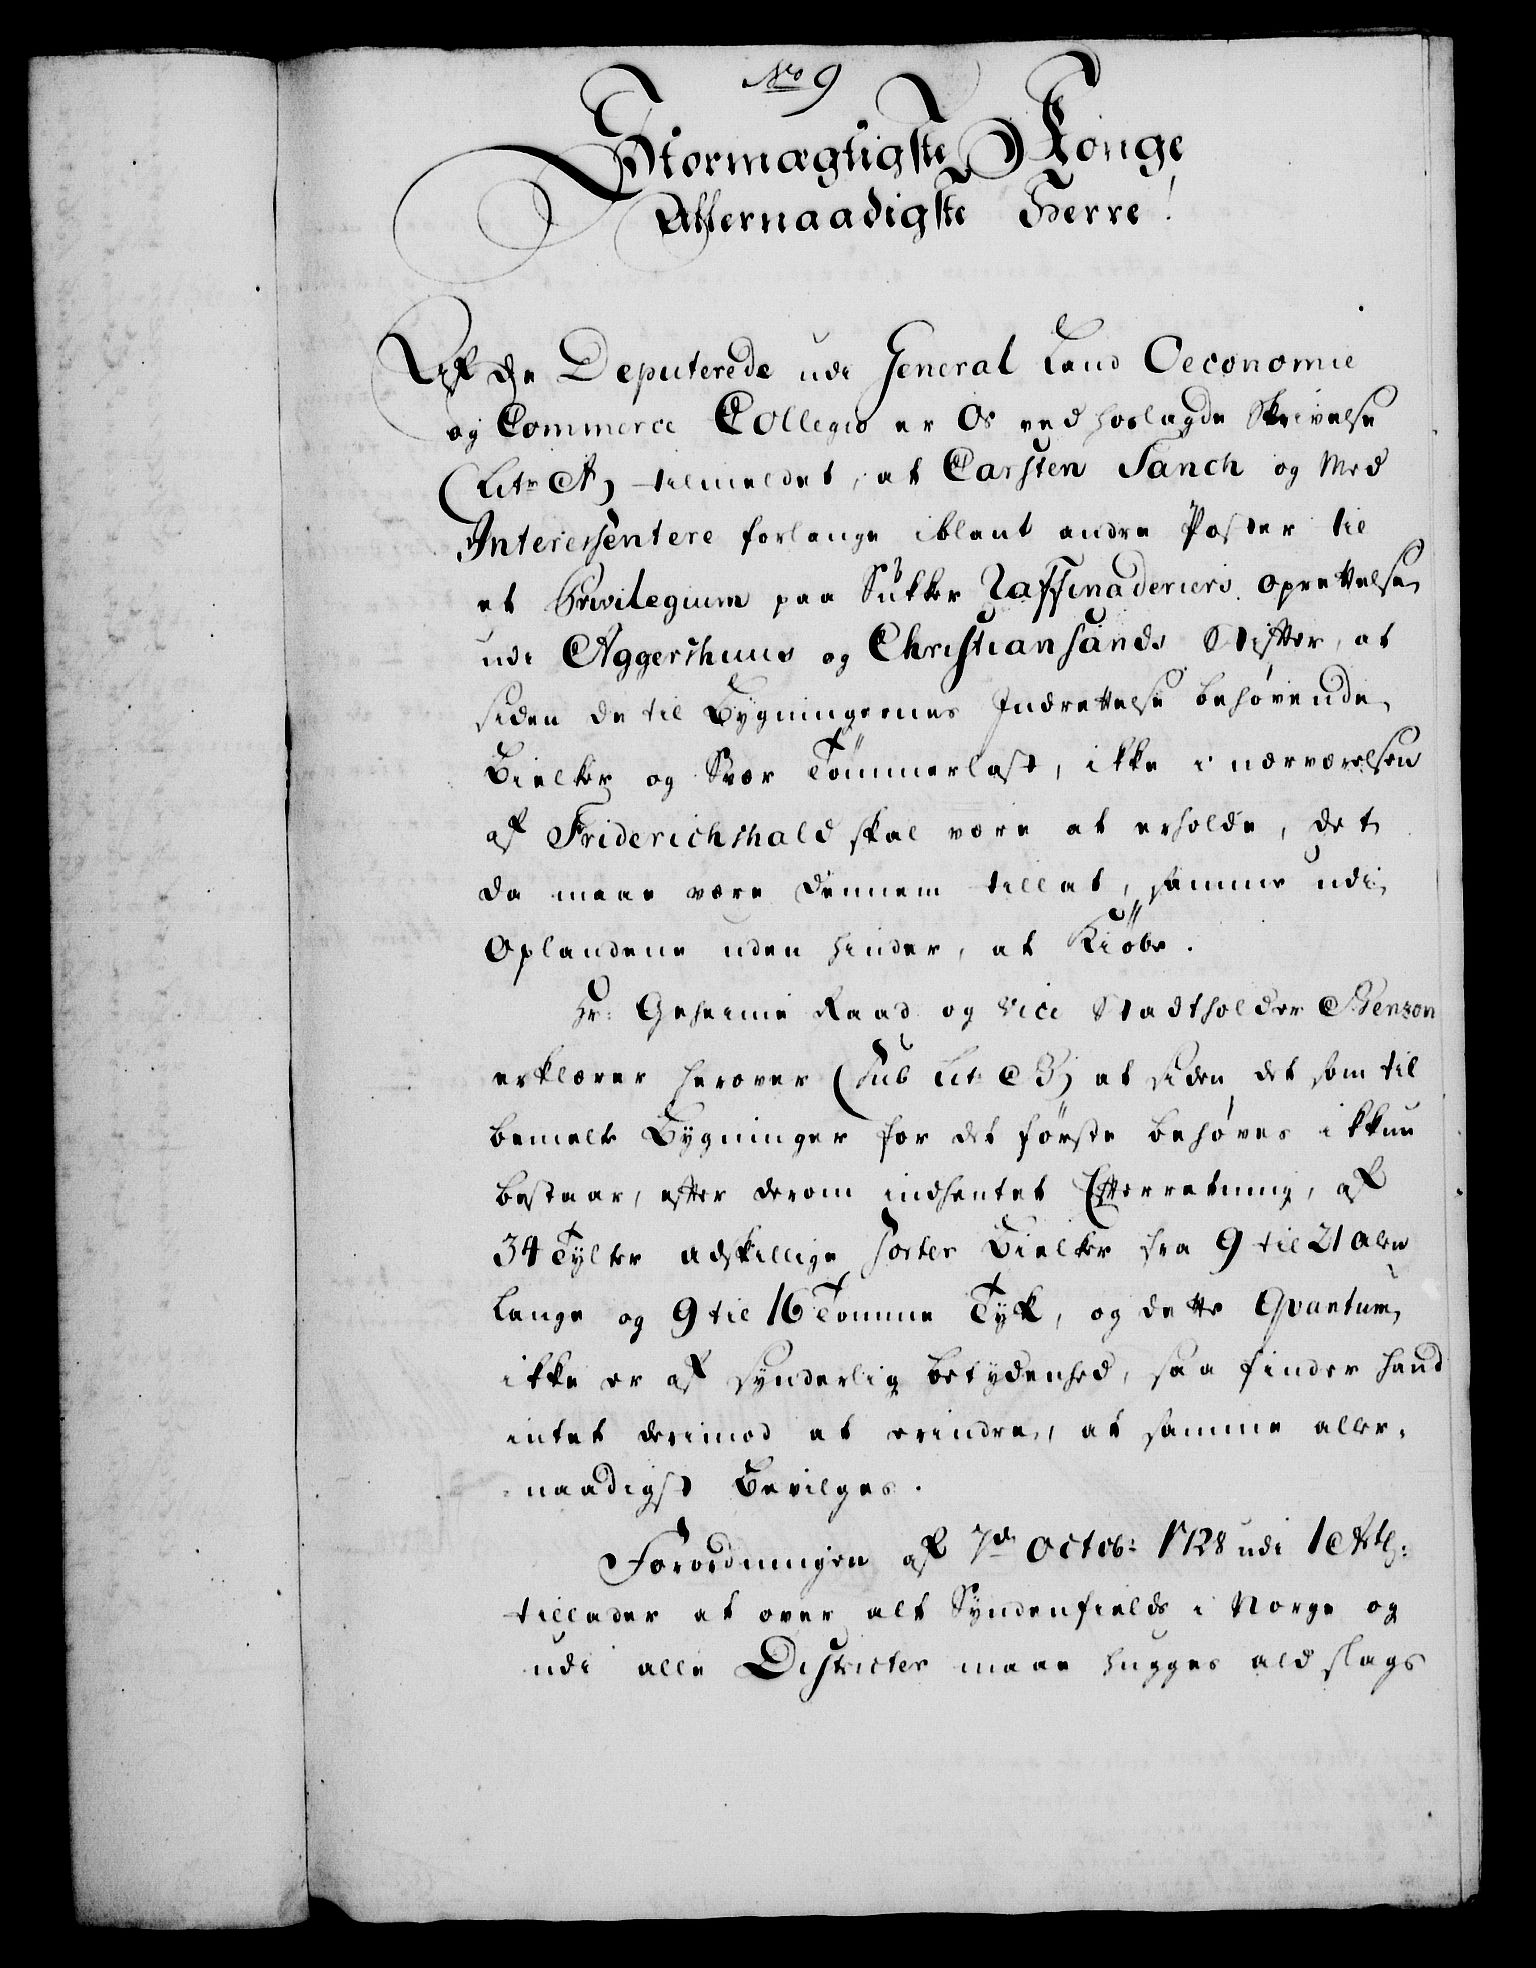 No 9
Stormægtigste Konge
Allernaadigste Herre!
Af de Deputerede udi General Land Oeconomie
og Commerce Collegio er Os ved hoslagde Skrivelse
(Litr A) tilmeldet, at Carsten Tanch og Med
Interessentere forlange iblant andre Poster til
et Privilegium paa Sukker Raffinaderiers oprettelse
udi Aggershuus og Christiansands Stifter, at
siden de til Bygningernes Indrettelse behøvende
Bielker og Svær Tømmerlast, ikke i nærværelsen
af Friderichshald skal være at erholde, det
da maae være dennem tillat, samme udi
Oplandene uden hinder, at Kiøbe.
Hr: Geheime Raad og Vice Stadtholder Benzon
erklærer herover (Sub Lit: B) at siden det som til
bemelte Bygninger for det første behøves ikkun
bestaar, efter derom indhentet Efterretning, af
34 Tylter adskillige Sorter Bielker fra 9 til 21 alen
lange og 9 til 16 Tomme Tyk, og dette Qvantum
ikke er af synderlig betydenhed, saa finder hand
intet derimod at erindre, at samme aller-
naadigst Bevilges.
Forordningen af 7de Octob: 1728 udi 1ste Art:
tillader at over alt Syndenfields i Norge og
udi alle Districter maae hugges ald slags